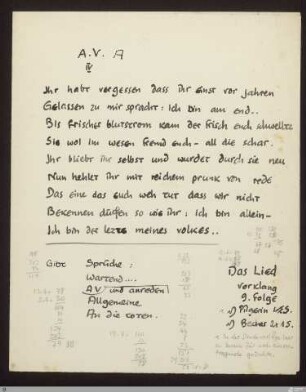 A.V. A
IV
Ihr habt vergessen dass ihr einst vor jahren
Gelassen zu mir spracht: Ich bin am end..
Bis frisches blutstrom kam der frisch euch schwellte
Sie wol im wesen fremd euch - all die schar.
Ihr bliebt ihr selbst und wurdet durch sie neu
Nun hehlt ihr mit reichem prunk von rede
Das eine das euch weh tut dass wir nicht
Bekennen dürfen so wie ihr: Ich bin allein-
Ich bin der letzte meines volkes..
Sprüche:
Wartend....
A.V. und anreden
Allgemeine
An die toten.
Das Lied
vorklang
9. Folge
1) Pilgerin
2) Becher 2 x 15.